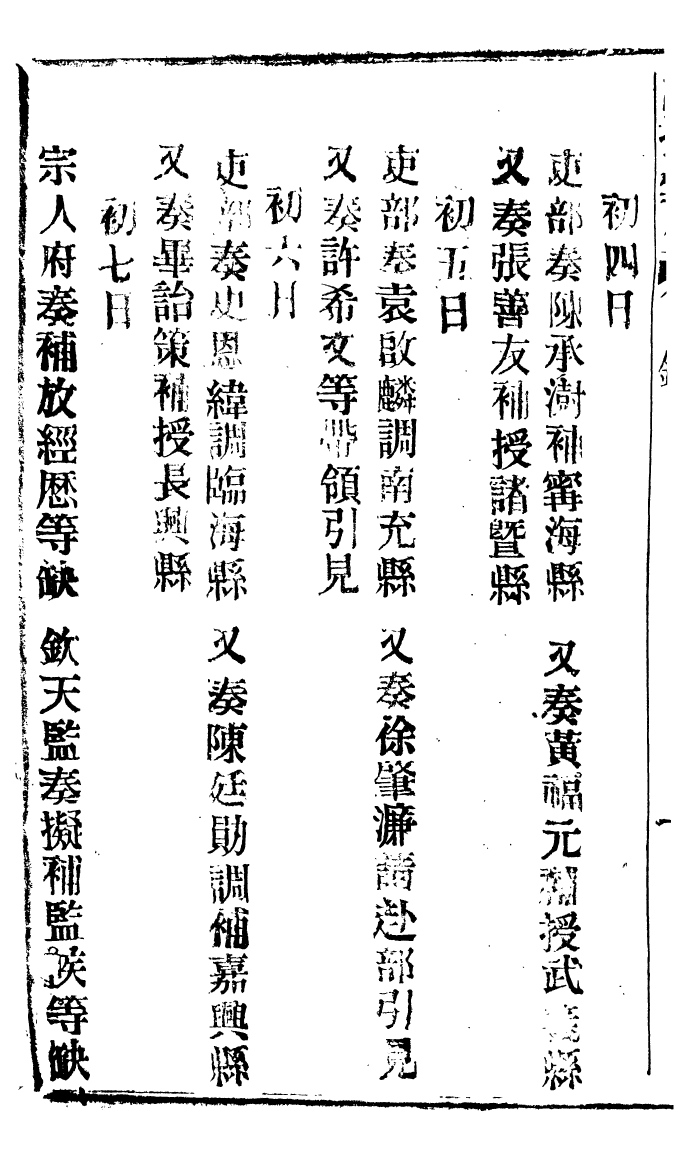 初四日
吏部奏陳承澍補甯海縣　又奏黃福元補授武義縣
又奏張善友補授諸曁縣
初五日
吏部奏袁啟麟調南充縣　又奏徐肇濂請赴部引見
又奏許希文等帶領引見
初六日
吏部奏史恩緯調臨海縣　又奏陳廷勛調補嘉興縣
又奏畢詒策補授長興縣
初七日
宗人府奏補放經歷等缺　欽天監奏擬補監候等缺